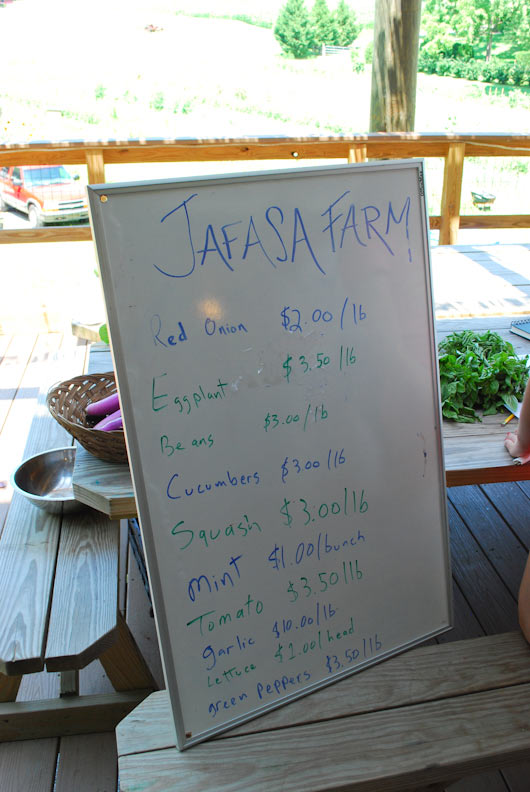 JAFASA FARM
Red Onion $2.00/lb
Eggplant $3.50/lb
Beans $3.00/lb
Cucumbers $3.00/lb
Squash $3.00/lb
mint $1.00/bunch
Tomato $3.50/lb
garlic $10.00/lb
Lettuce $2.00/head
green peppers $3.50/lb